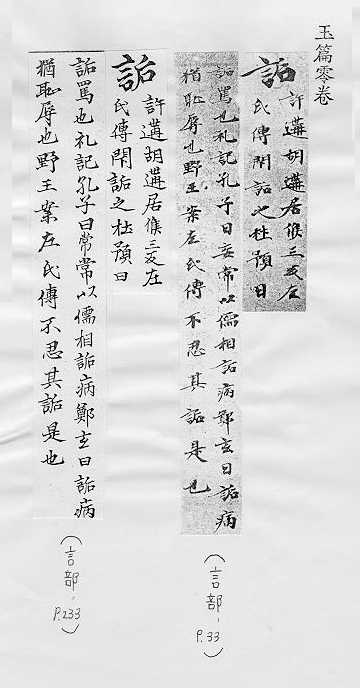 玉篇零卷
詬
許遘胡遘居候三反左
氏傳閈詬之杜預曰
詬罵也礼記孔子曰妄常以儒相詬病鄭玄曰詬病
猶恥辱也野王案左氏傳不忍其詬是也
(言部, P.33)
詬
許遘胡遘居候三反左
氏傳閈詬之杜預曰
詬罵也礼記孔子曰常常以儒相詬病鄭玄曰詬病
猶恥辱也野王案左氏傳不忍其詬是也
(言部, P.233)